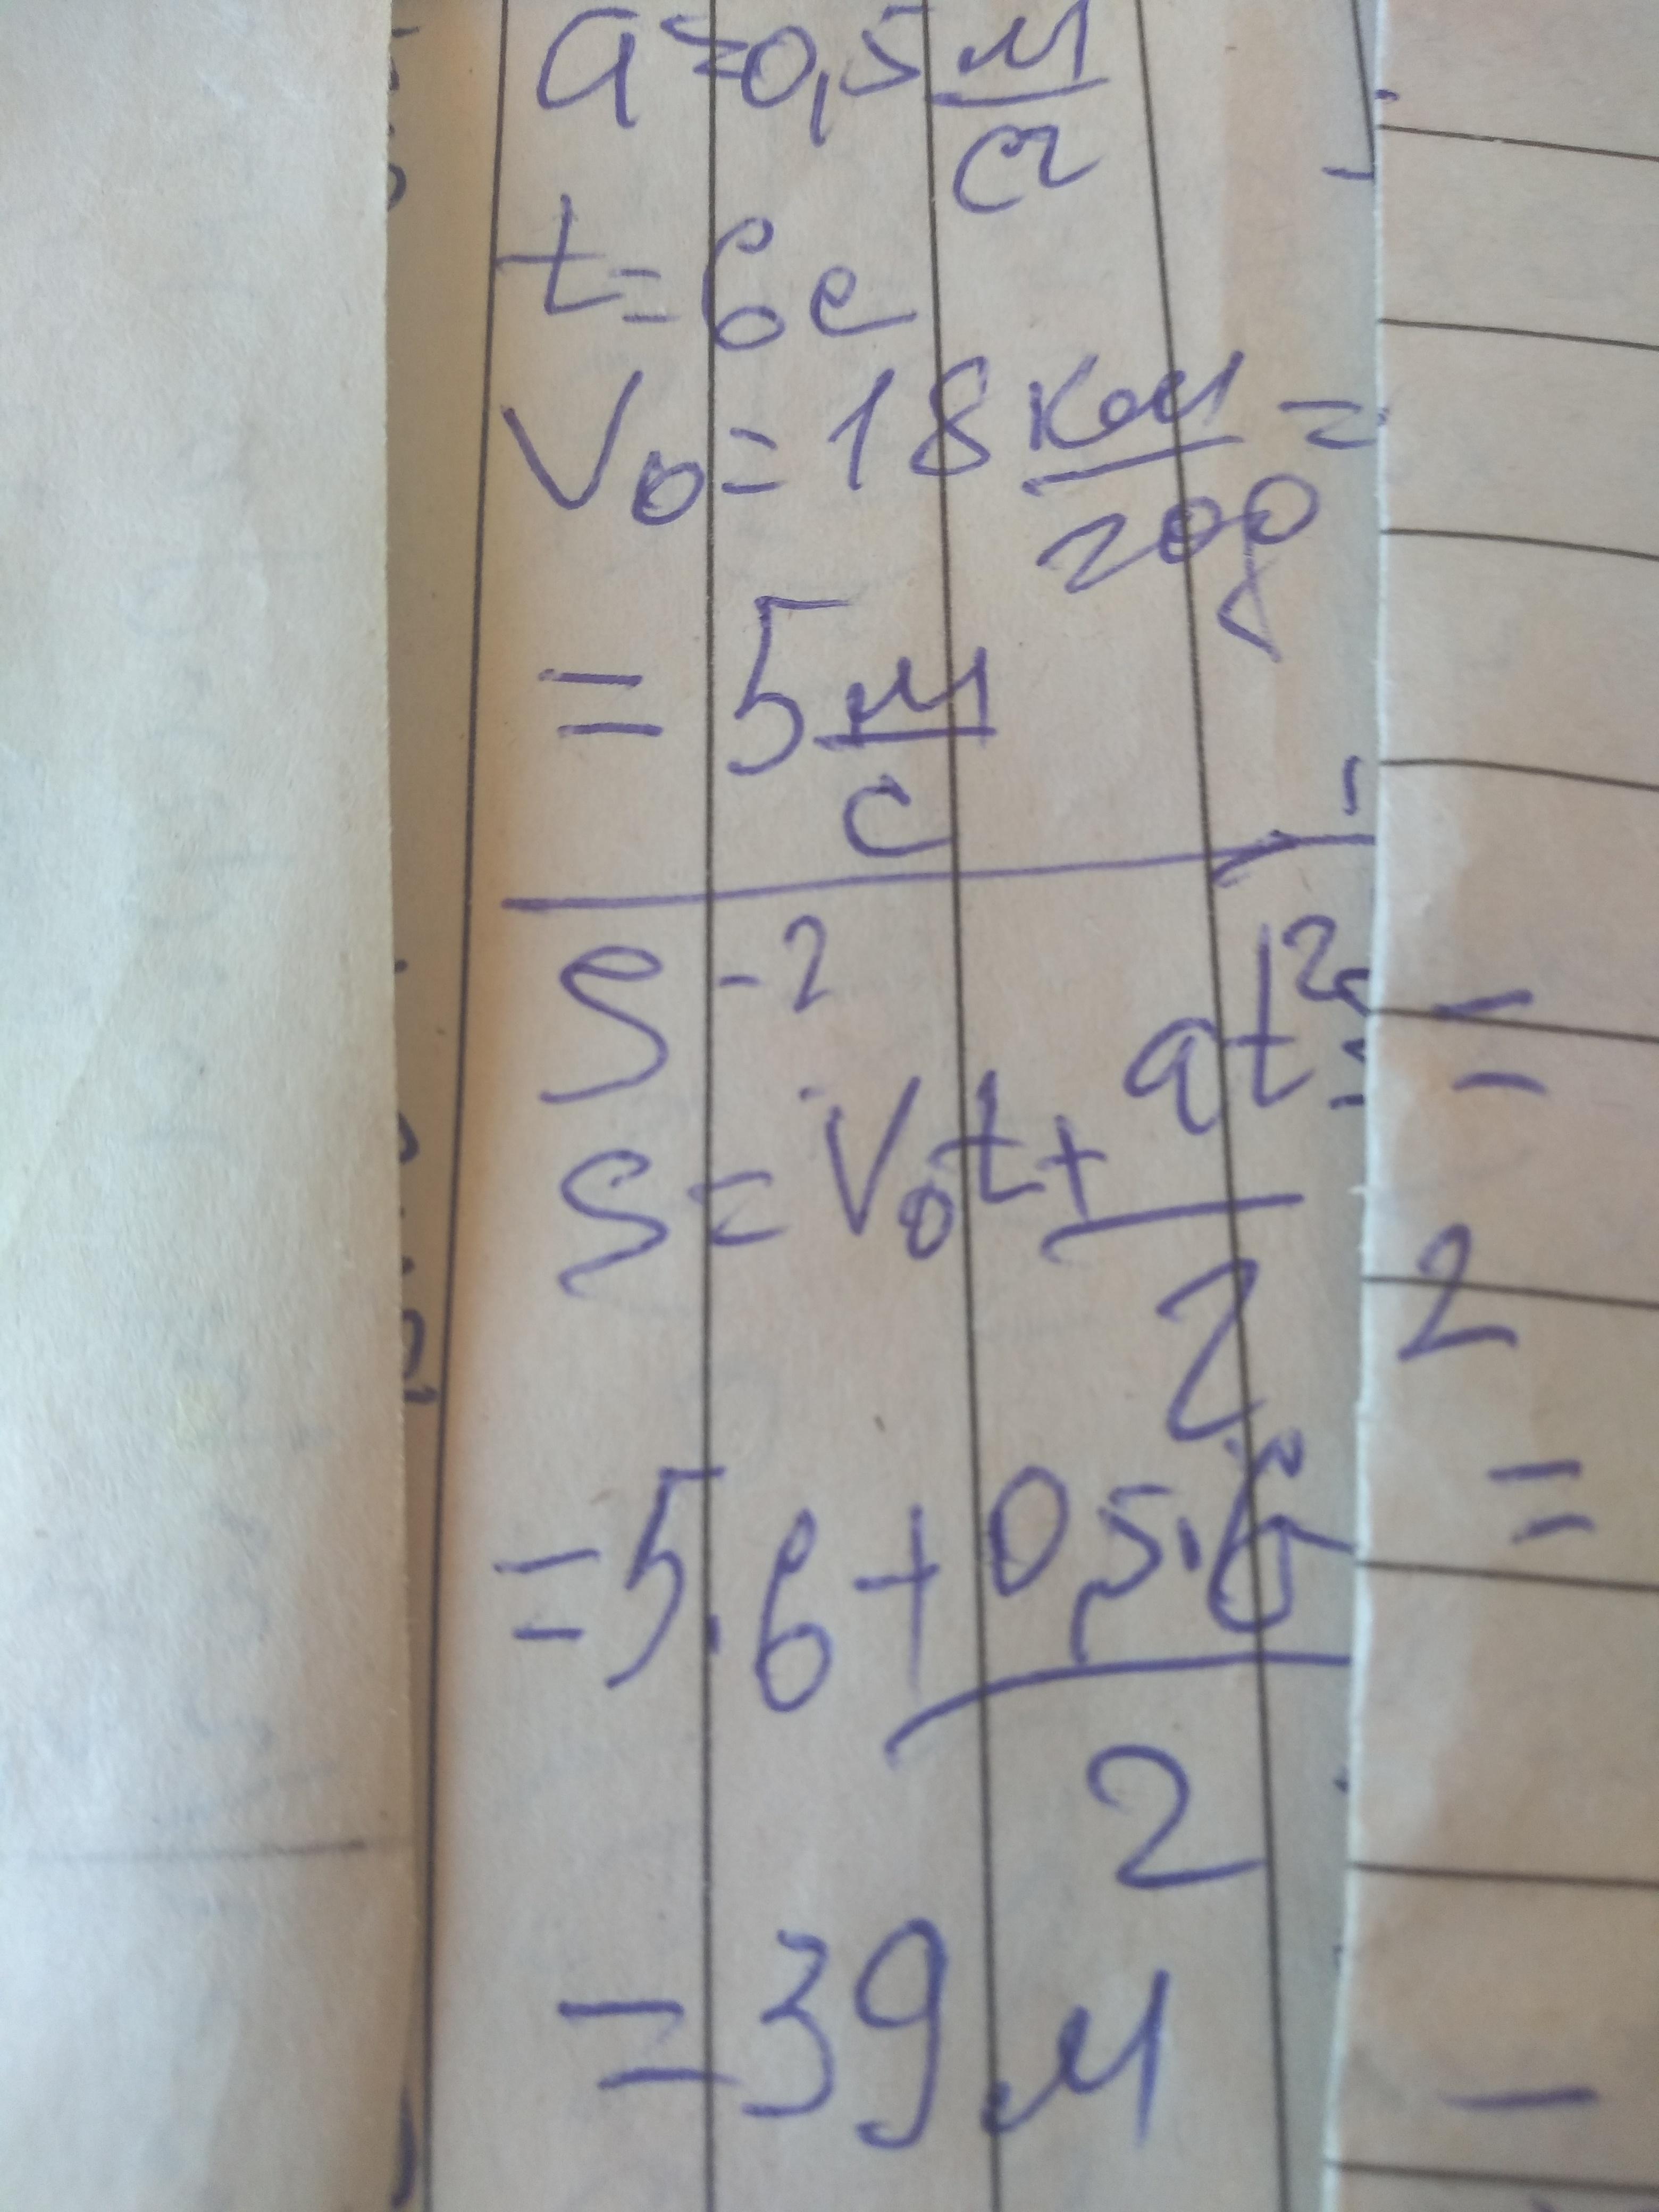 a = 0,5 м/с²
t = 6 с
V₀ = 18 км/год =
= 5 м/с
S - ?
S = V₀t + at²/2 =
= 5·6 + 0,5·6²/2 =
= 39 м